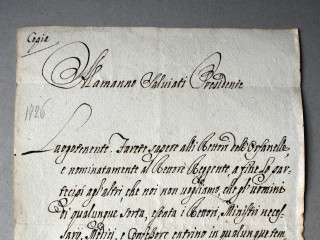 Copia
Alamanno Salviati Presidente
1726
Luogotenente. Farete sapere alli Rettori dell'Orfanelle,
e nominatamente al Rettore Reggente, a fine lo par-
tecipi agl'altri, che noi non vogliamo, che gl'uomini
di qualunque sorta, esenta i Rettori, Ministri neces-
sarij, Medici, e Confessore entrino in qualunque tem